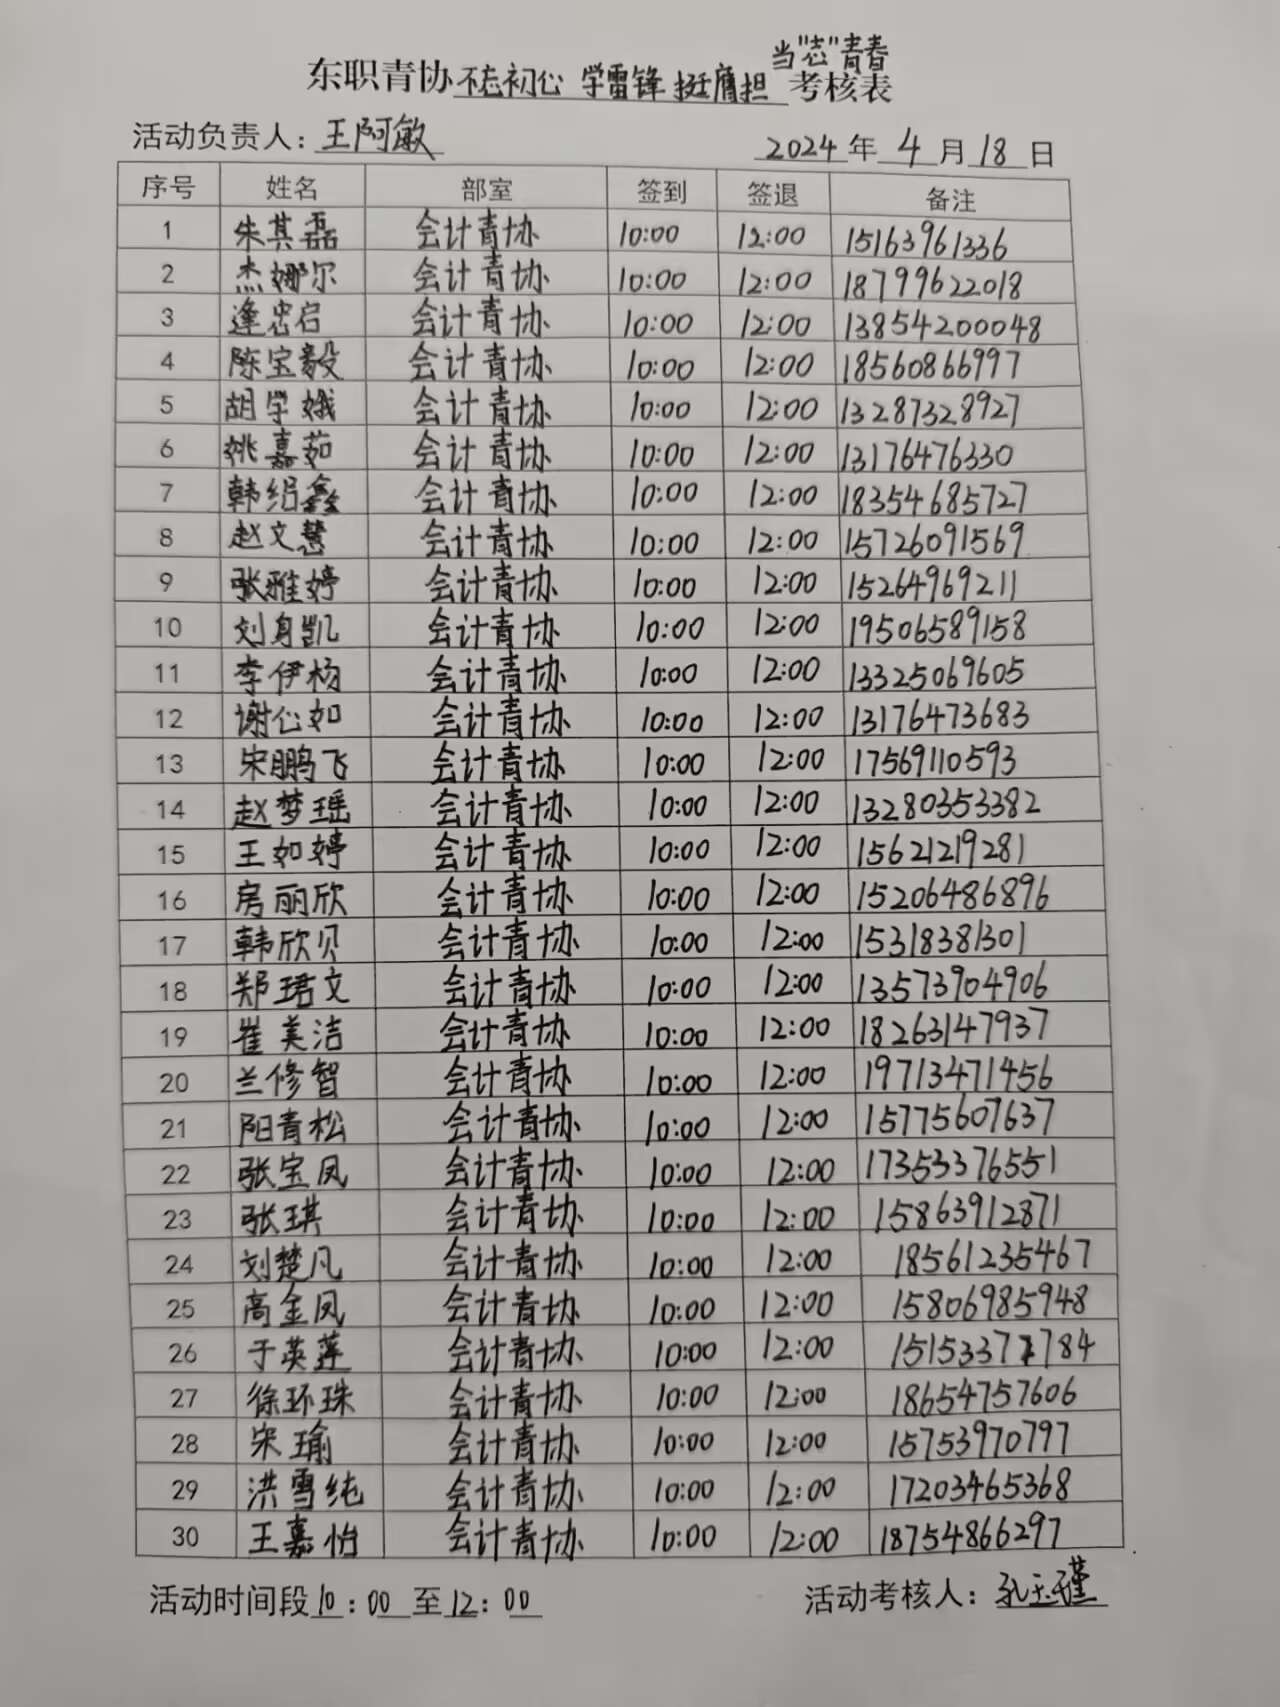 当"志"青春
东职青协不忘初心 学雷锋 挺膺担考核表
活动负责人：王阿敏 2024年4月18日
序号 姓名 部室 签到 签退 备注
1 朱其磊 会计青协 10:00 12:00 15163961336
2 杰娜尔 会计青协 10:00 12:00 18799622018
3 逄忠启 会计青协 10:00 12:00 13854200048
4 陈宝毅 会计青协 10:00 12:00 18560866997
5 胡学娥 会计青协 10:00 12:00 13287328927
6 姚嘉茹 会计青协 10:00 12:00 13176476330
7 韩绍鑫 会计青协 10:00 12:00 18354685727
8 赵文慧 会计青协 10:00 12:00 15726091569
9 张雅婷 会计青协 10:00 12:00 15264969211
10 刘身凯 会计青协 10:00 12:00 19506589158
11 李伊杨 会计青协 10:00 12:00 13325069605
12 谢心如 会计青协 10:00 12:00 13176473683
13 宋鹏飞 会计青协 10:00 12:00 17569110593
14 赵梦瑶 会计青协 10:00 12:00 13280353382
15 王如婷 会计青协 10:00 12:00 15621219281
16 房丽欣 会计青协 10:00 12:00 15206486896
17 韩欣贝 会计青协 10:00 12:00 15318381301
18 郑珺文 会计青协 10:00 12:00 13573904906
19 崔美洁 会计青协 10:00 12:00 18263147937
20 兰修智 会计青协 10:00 12:00 19713471456
21 阳青松 会计青协 10:00 12:00 15775607637
22 张宝凤 会计青协 10:00 12:00 17353376551
23 张琪 会计青协 10:00 12:00 15863912871
24 刘楚凡 会计青协 10:00 12:00 18561235467
25 高金凤 会计青协 10:00 12:00 15806985948
26 于英莲 会计青协 10:00 12:00 15153371784
27 徐环珠 会计青协 10:00 12:00 18654757606
28 宋瑜 会计青协 10:00 12:00 15753970797
29 洪雪纯 会计青协 10:00 12:00 17203465368
30 王嘉怡 会计青协 10:00 12:00 18754866297
活动时间段10：00至12：00 活动考核人：孔玉瑾